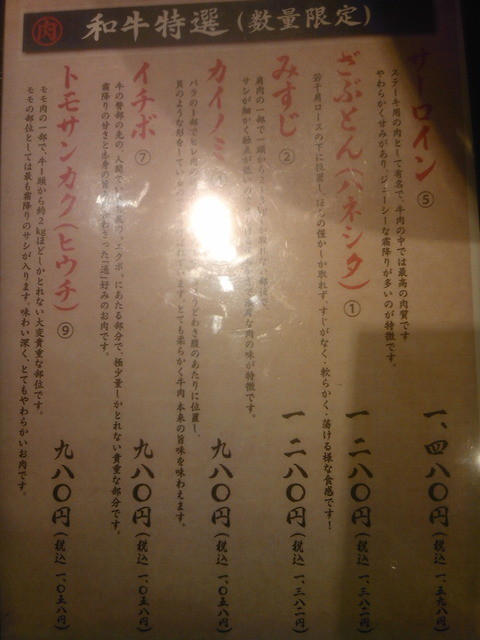 肉 和牛特選(数量限定)
サーロイン ⑤
ステーキ用の肉として有名で、牛肉の中では最高の肉質です
やわらかく甘みがあり、ジューシーな霜降りが多いのが特徴です。
一、四八〇円(税込 一、五九八円)
ざぶとん(ハネシタ) ①
若干肩ロースの下に位置し、ほんの僅かしか取れず。すじがなく・軟らかく・蕩ける様な食感です!
一二八〇円(税込 一、三八二円)
みすじ ②
肩肉の一部で一頭から
サシが細かく融点が低い
な肉の味が特徴です。
一二八〇円(税込 一、三八二円)
カイノミ
バラの一部でヒレ肉の
どわき腹のあたりに位置し、
貝のような形をしてい
います。とても柔らかく牛肉本来の旨味を味わえます。
九八〇円(税込 一、〇五八円)
イチボ ⑦
牛の臀部の先の、人間でいう
エクボにあたる部分で、極少量しかとれない貴重な部分です。
霜降りの甘さと赤身の旨
わさった「通」好みのお肉です。
九八〇円(税込 一、〇五八円)
トモサンカク(ヒウチ) ⑨
モモ肉の一部で、牛一頭から約2kgほどしかとれない大変貴重な部位です。
モモの部位としては最も霜降りのサシが入ります。味わい深く、とてもやわらかいお肉です。
九八〇円(税込 一、〇五八円)